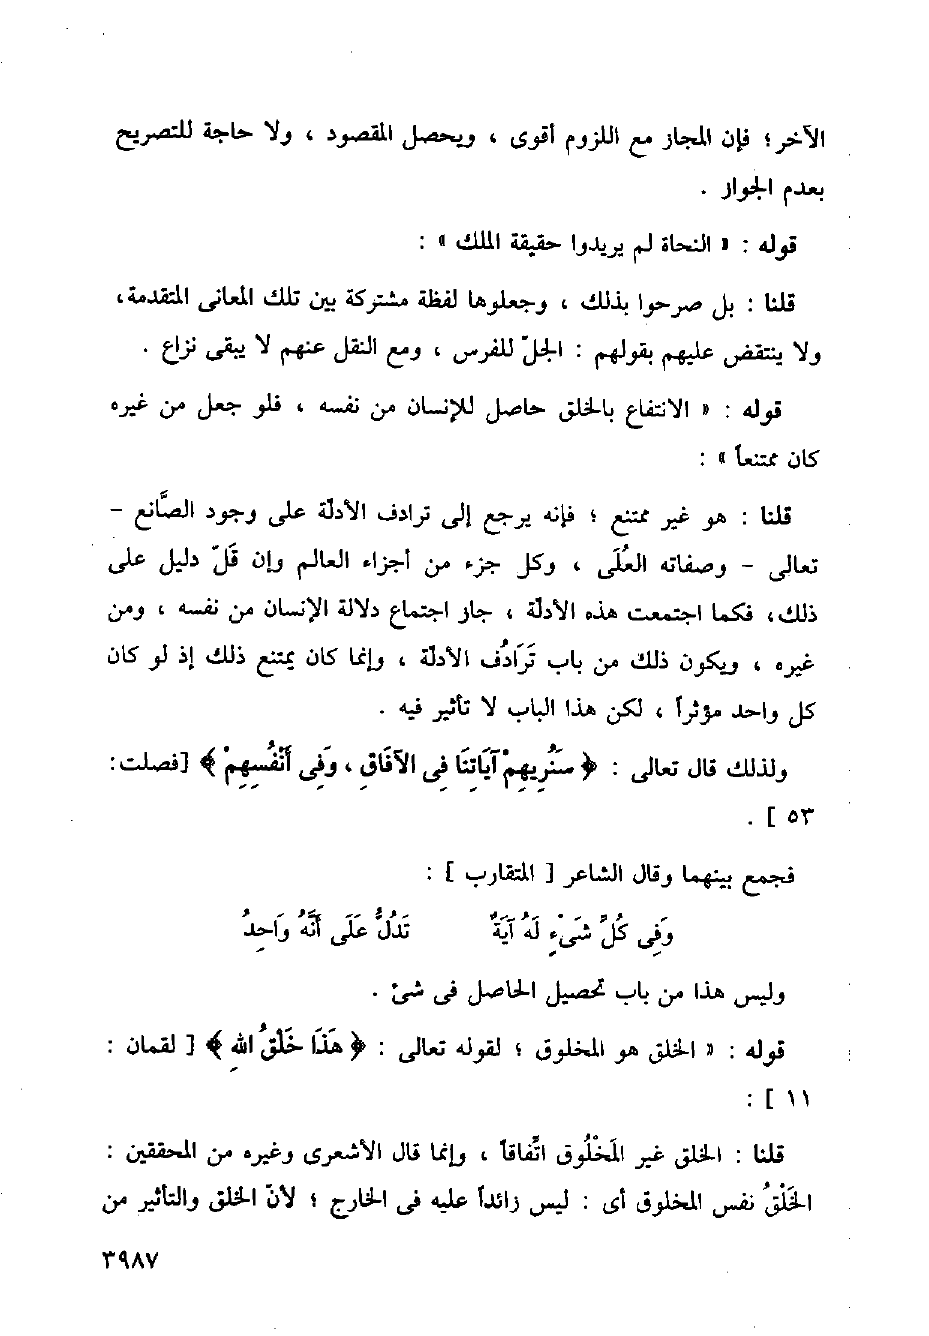 الآخر؛ فإن المجاز مع اللزوم أقوى ، ويحصل المقصود ، ولا حاجة للتصريح
بعدم الجواز .
قوله : « النحاة لم يريدوا حقيقة الملك » :
قلنا : بل صرحوا بذلك ، وجعلوها لفظة مشتركة بين تلك المعانى المتقدمة،
ولا ينتقض عليهم بقولهم : الجلّ للفرس ، ومع النقل عنهم لا يبقى نزاع .
قوله : « الانتفاع بالخلق حاصل للإنسان من نفسه ، فلو جعل من غيره
كان ممتنعاً » :
قلنا : هو غير ممتنع ؛ فإنه يرجع إلى ترادف الأدلة على وجود الصَّانع -
تعالى - وصفاته العُلَى ، وكل جزء من أجزاء العالم وإن قَلّ دليل على
ذلك، فكما اجتمعت هذه الأدلة ، جاز اجتماع دلالة الإنسان من نفسه ، ومن
غيره ، ويكون ذلك من باب تَرَادُف الأدلة ، وإنما كان يمتنع ذلك إذ لو كان
كل واحد مؤثراً ، لكن هذا الباب لا تأثير فيه .
ولذلك قال تعالى : ﴿ سَنُرِيهِمْ آيَاتِنَا فِى الآفَاقِ ، وَفِى أَنْفُسِهِمْ ﴾ [فصلت:
٥٣ ] .
فجمع بينهما وقال الشاعر [ المتقارب ] :
وَفِى كُلِّ شَىْءٍ لَهُ آيَةٌ تَدُلُّ عَلَى أَنَّهُ وَاحِدُ
وليس هذا من باب تحصيل الحاصل فى شئ .
قوله : « الخلق هو المخلوق ؛ لقوله تعالى : ﴿ هَذَا خَلْقُ اللهِ ﴾ [ لقمان :
١١ ] :
قلنا : الخلق غير المَخْلُوق اتِّفاقاً ، وإنما قال الأشعرى وغيره من المحققين :
الخَلْقُ نفس المخلوق أى : ليس زائداً عليه فى الخارج ؛ لأنّ الخلق والتأثير من
٣٩٨٧